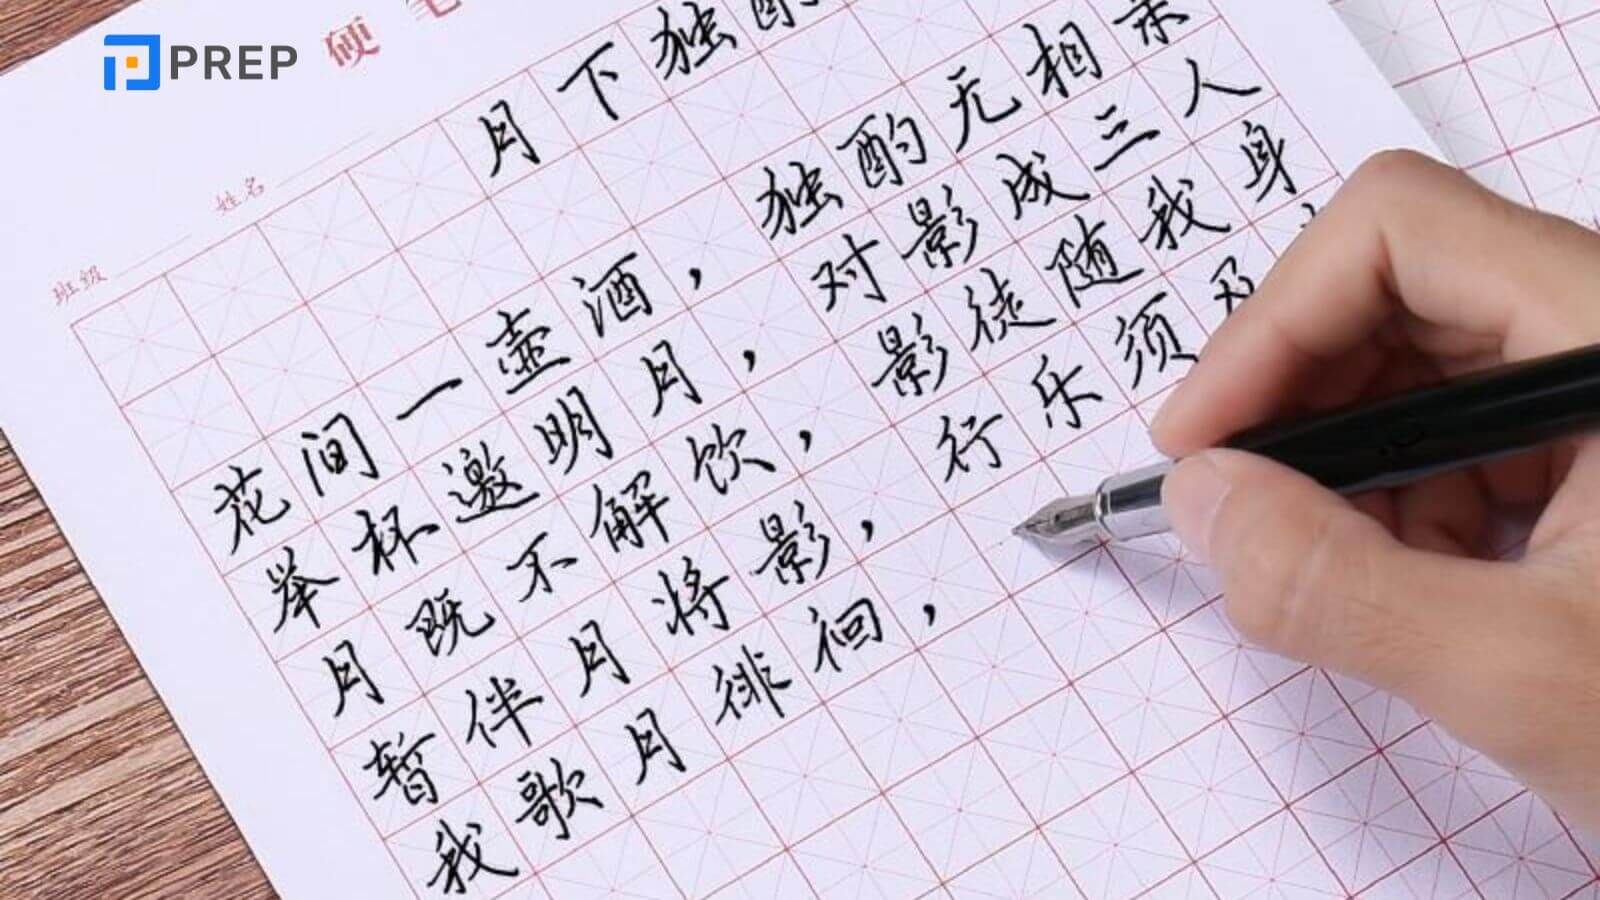 PREP
硬笔
姓名
班级
月下独酌
花间一壶酒，独酌无相亲
举杯邀明月，对影成三人
月既不解饮，影徒随我身
暂伴月将影，行乐须及
我歌月徘徊，